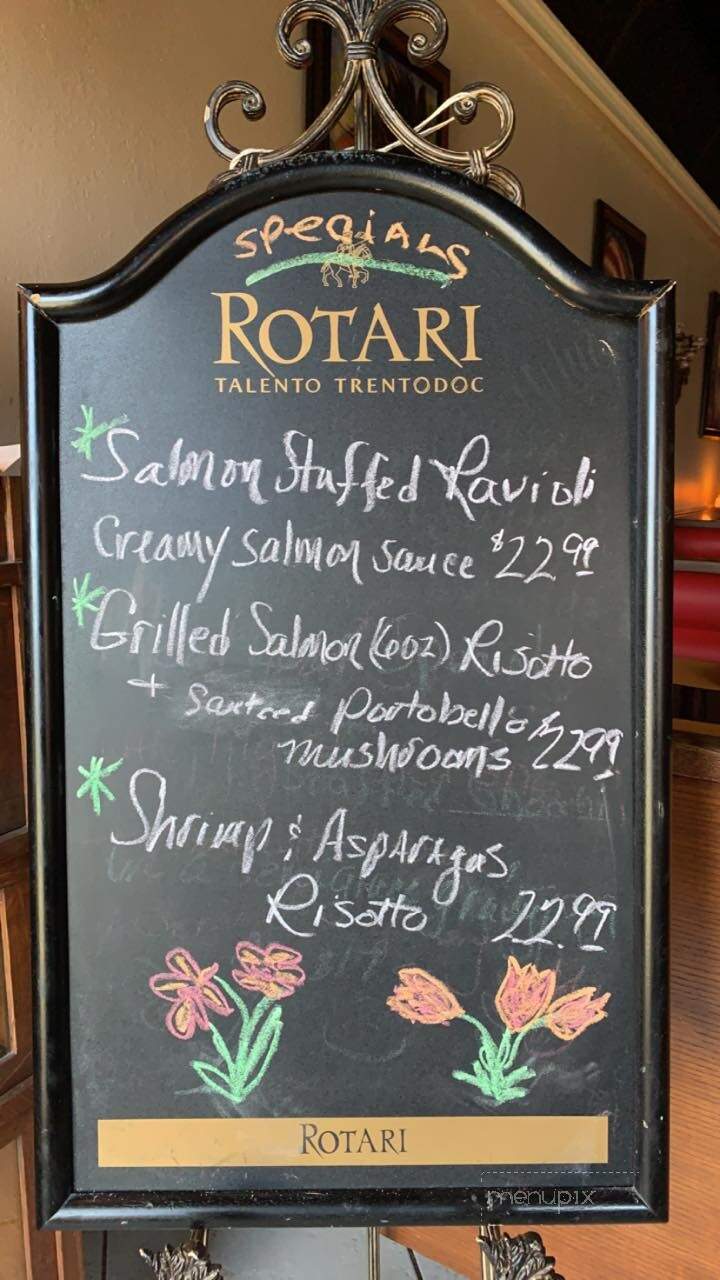 SPECiALS
ROTARI
TALENTO TRENTODOC
* Salmon Stuffed Ravioli
Creamy Salmon Sauce $22 99
* Grilled Salmon (6oz) Risotto
+ Sauteed Portobello
mushrooms $22 99
* Shrimp & Asparagus
Risotto 22.99
ROTARI
menupix